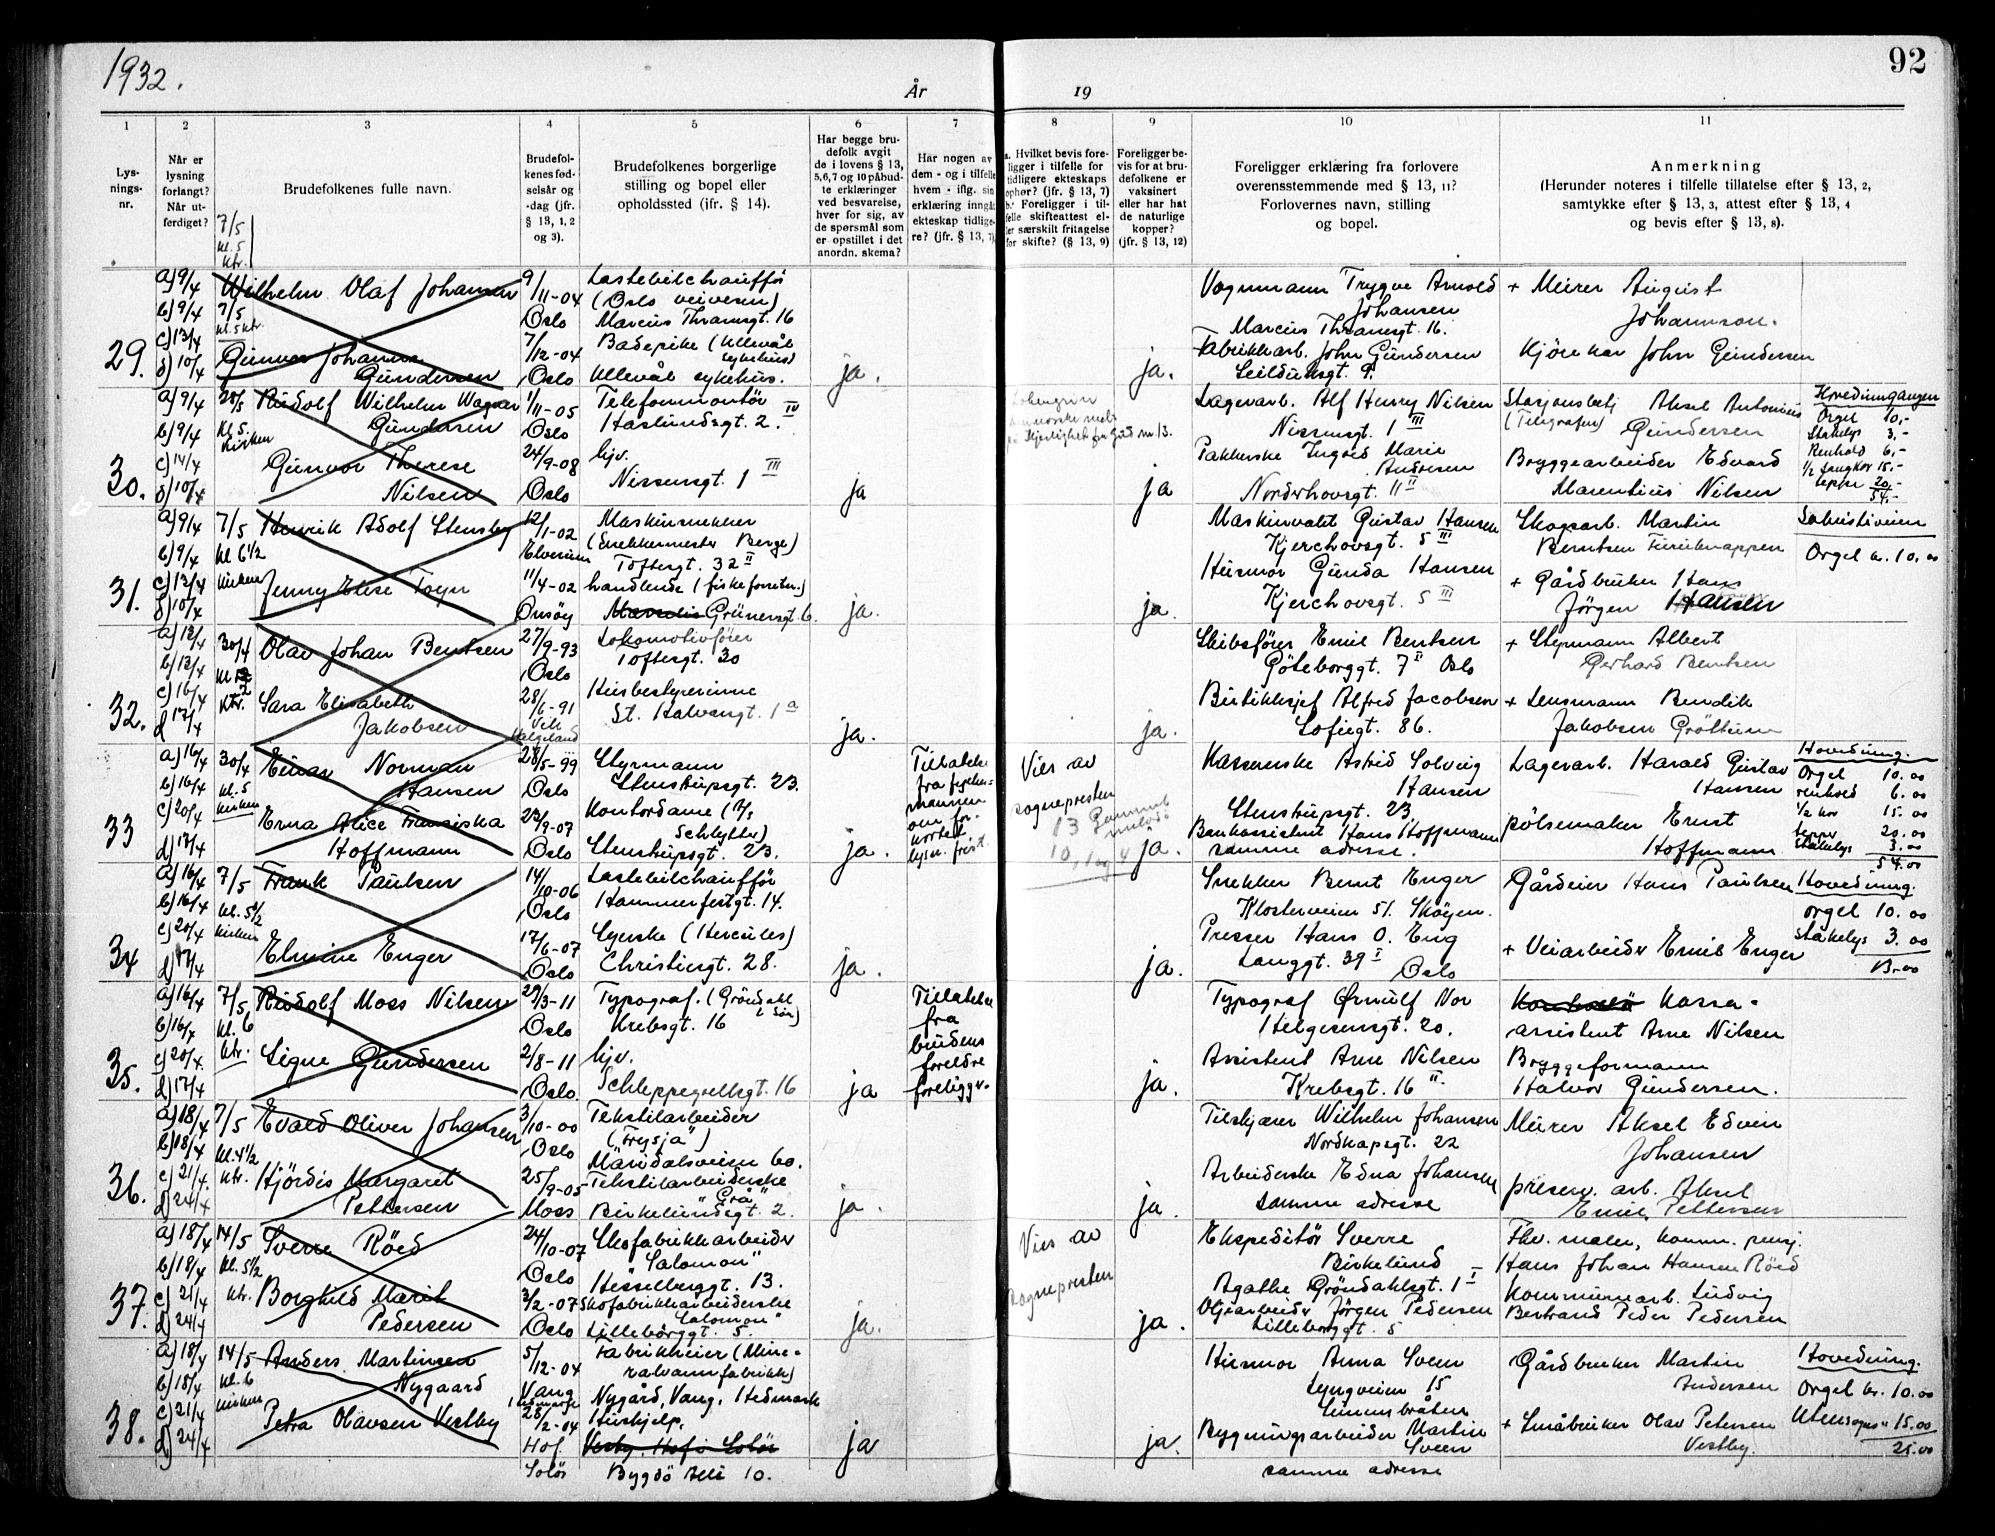 1932.
År
19
92
1
2
3
4
5
6
7
8
9
10
11
Lys-
nings-
nr.
Når er
lysning
forlangt?
Når ut-
ferdiget?
Brudefolkenes fulle navn.
Brudefol-
kenes fød-
selsår og
-dag (jfr.
§ 13, 1, 2
og 3).
Brudefolkenes borgerlige
stilling og bopel eller
opholdssted (ifr. § 14).
Har begge bru-
defolk avgit
de i lovens § 13,
5,6,7 og 10 påbud-
te erklæringer
ved besvarelse,
hver for sig, av
de spørsmål som
er opstillet i det
anordn. skema?
Har nogen av
dem - og i tilfelle
hvem - iflg. sin
erklæring inngåt
ekteskap tidlige-
re? (jfr. § 13, 7)
a. Hvilket bevis fore-
ligger i tilfelle for
tidligere ekteskaps
ophør? (jfr. § 13, 7)
b. Foreligger i til-
felle skifteattest el-
ler særskilt fritagelse
for skifte? (§ 13, 9)
Foreligger be-
vis for at bru-
defolkene er
vaksinert
eller har hat
de naturlige
kopper?
(jfr. § 13, 12)
Foreligger erklæring fra forlovere
overensstemmende med § 13, 11?
Forlovernes navn, stilling
og bopel.
Anmerkning
(Herunder noteres i tilfelle tillatelse efter § 13, 2,
samtykke efter § 13, 3, attest efter § 13, 4
og bevis efter § 13, 8).
7/5
kl. 5
ktr.
29.
a) 9/4
b) 9/4
c) 13/4
d) 10/4
7/5
kl. 5 ktr.
Wilhelm Olaf Johansen
Gunvor Johanne
Gundersen
9/11-04
Oslo
7/12-04
Oslo
Lastebilchauffør
(Oslo veivesen)
Marcus Thranesgt. 16
Badepike (Ullevål
sykehus)
Ullevål sykehus.
ja.
ja.
Vognmann Trygve Arnold
Johansen
Marcus Thranesgt. 16.
Fabrikkarb. John Gundersen
Seildugsgt. 9.
+ Murer August
Johannson.
Kjørekar John Gundersen
30.
a) 9/4
b) 9/4
c) 14/4
d) 10/4
28/5
kl. 5.
kirken
Rudolf Wilhelm Wagner
Gundersen
Gunvor Therese
Nilsen
1/11-05
Oslo
24/9-08
Oslo
Telefonmontør
Haslundsgt. 2. IV
hjv.
Nissensgt. 1 III
ja
ja
Lagerarb. Alf Henry Nilsen
Nissensgt. 1 III
Pakkerske Ingrid Marie
Andresen
Norderhovsgt. 11 II
Stasjonsbetj. Aksel Antonius
(Telegrafen) Gundersen
Bryggearbeider Edvard
Marentius Nilsen
Hovedinngangen
Orgel 10,-
Stakelys 3,-
Renhold 6,-
1/2 sangkor 15,-
tepper 20,-
54,-
31.
a) 9/4
b) 9/4
c) 13/4
d) 10/4
7/5
kl 6 1/2
kirken
Henrik Adolf Stensby
Jenny Elise Foyn
12/1-02
Elverum
11/4-02
Onsøy
Maskinsnekker
(Snekkermester Berge)
Toftesgt. 32 II
handlende (fiskeforretn.)
Grünersgt. 6.
ja.
ja.
Maskinvakt Gustav Hansen
Kjerchovsgt. 5 III
Husmor Gunda Hansen
Kjerchovsgt. 5 III
Skogsarb. Martin
Berntsen
+ Gårdbruker Hans
Jørgen Hansen
Sakristiveien
Orgel kr. 10.00
32.
a) 13/4
b) 13/4
c) 16/4
d) 17/4
30/4
kl. 2
ktr.
Olav Johan Bentsen
Sara Elisabeth
Jakobsen
27/9-93
Oslo
28/6-91
Lokomotivfører
Toftesgt. 30
Husbestyrerinne
St. Halvardsgt. 1 a
ja.
ja.
Skibsfører Emil Bentsen
Göteborggt. 7 II Oslo
Butikksjef Alfred Jacobsen
Sofiegt. 86.
+ Styrmann Albert
Gerhard Bentsen
+ Lensmann Bendik
Jakobsen Grøttum
33
a) 16/4
b) 16/4
c) 20/4
d) 17/4
30/4
kl. 5
kirken
Einar Norman
Hansen
Erna Alice Franciska
Hoffmann
28/5-99
Oslo
23/9-07
Oslo
Styrmann
Stenstrupsgt. 23.
Kontordame (A/S
Schlytter)
Stenstrupsgt. 23.
ja.
Tillatelse
fra fylkes-
mannen
om for-
kortet
lysn. frist.
Vies av
sognepresten
ja.
Kassererske Astrid Solveig
Hansen
Stenstrupsgt. 23.
Bankassistent Hans Hoffmann
samme adresse.
Lagerarb. Harald Gustav
Hansen
pølsemaker Ernst
Hoffmann
Hovedinng.
Orgel 10.00
renhold 6.00
1/2 kor 15.00
tepper 20.00
Stakelys 3.00
54.00
34
a) 16/4
b) 16/4
c) 20/4
d) 17/4
7/5
kl. 5 1/2
kirken
Frank Paulsen
Elmine Enger
14/10-06
Oslo
17/6-07
Oslo
Lastebilchauffør
Hammerfestgt. 14.
Syerske (Hercules)
Christiesgt. 28.
ja.
ja.
Snekker Bernt Enger
Klosterveien 51. Skøyen.
Presser Hans O. Eng
Langgt. 39 I Oslo
Gårdeier Hans Paulsen
+ Veiarbeider Emil Enger
Hovedinng.
orgel 10.00
Stakelys 3.00
13.00
35.
a) 16/4
b) 16/4
c) 20/4
d) 17/4
7/5
kl. 6
ktr.
Rudolf Moss Nilsen
Signe Gundersen
29/3-11
Oslo
2/8-11
Oslo.
Typograf. (Grøndahl
& Søn)
Krebsgt. 16
hjv.
Schleppegrellsgt. 16
ja
Tillatelse
fra
brudens
foreldre
foreligger.
ja.
Typograf Ørnulf Nor
Helgesensgt. 20.
Assistent Arne Nilsen
Krebsgt. 16 II.
Kasse-
assistent Arne Nilsen
Bryggeformann
Halvor Gundersen.
36.
a) 18/4
b) 18/4
c) 21/4.
d) 24/4
7/5
kl. 4 1/2
ktr.
Evald Oliver Johansen
Hjördis Margaret
Pettersen
3/10-00
Oslo
25/9-05
Moss
Tekstilarbeider
("Frysja")
Maridalsveien 60.
Tekstilarbeiderske
"Grå"
Birkelundsgt. 2.
ja.
ja.
Tilskjærer Wilhelm Johansen
Nordkapsgt. 22
Arbeiderske Edna Johansen
samme adresse
Murer Aksel Edvin
Johansen
preserv. arb. Aksel
Emil Pettersen
37.
a) 18/4
b) 18/4
c) 21/4
d) 24/4
14/5
kl. 5 1/2
ktr.
Sverre Røed
Borghild Marie
Pedersen
24/10-07
Oslo
3/2-07
Oslo
Skofabrikkarbeider
"Salomon"
Hesselberggt. 13.
Skofabrikkarbeiderske
"Salomon"
Lilleborggt. 5.
ja.
Vies av
sognepresten
ja.
Ekspeditør Sverre
Birkelund
Agathe Grøndahlsgt. 1 I
Oljearbeider Jørgen Pedersen
Lilleborggt. 5
Fhv. maler, komm. pensj.
Hans Johan Hansen Røed
Kommunearb. Ludvig
Bertrand Peder Pedersen
38.
a) 18/4
b) 18/4
c) 21/4
d) 24/4
14/5
kl. 6
kirken
Anders Martinsen
Nygaard
Petra Olavsen Vestby
5/12-04
Vang
Hedmark
28/2-04
Hof.
Solør
Fabrikkeier (Mine-
ralvannfabrikk)
Nygård, Vang, Hedmark
Hushjelp.
Vestby, Hof i Solør
Bygdö Allé 10.
ja
ja.
Husmor Anna Sveen
Lyngveien 15
Simensbråten
Bygningsarbeider Martin
Sveen
samme adresse
Gårdbruker Martin
Andersen
+ Småbruker Olav Petersen
Vestby.
Hovedinng.
Orgel kr. 10.00
15.00
25.00